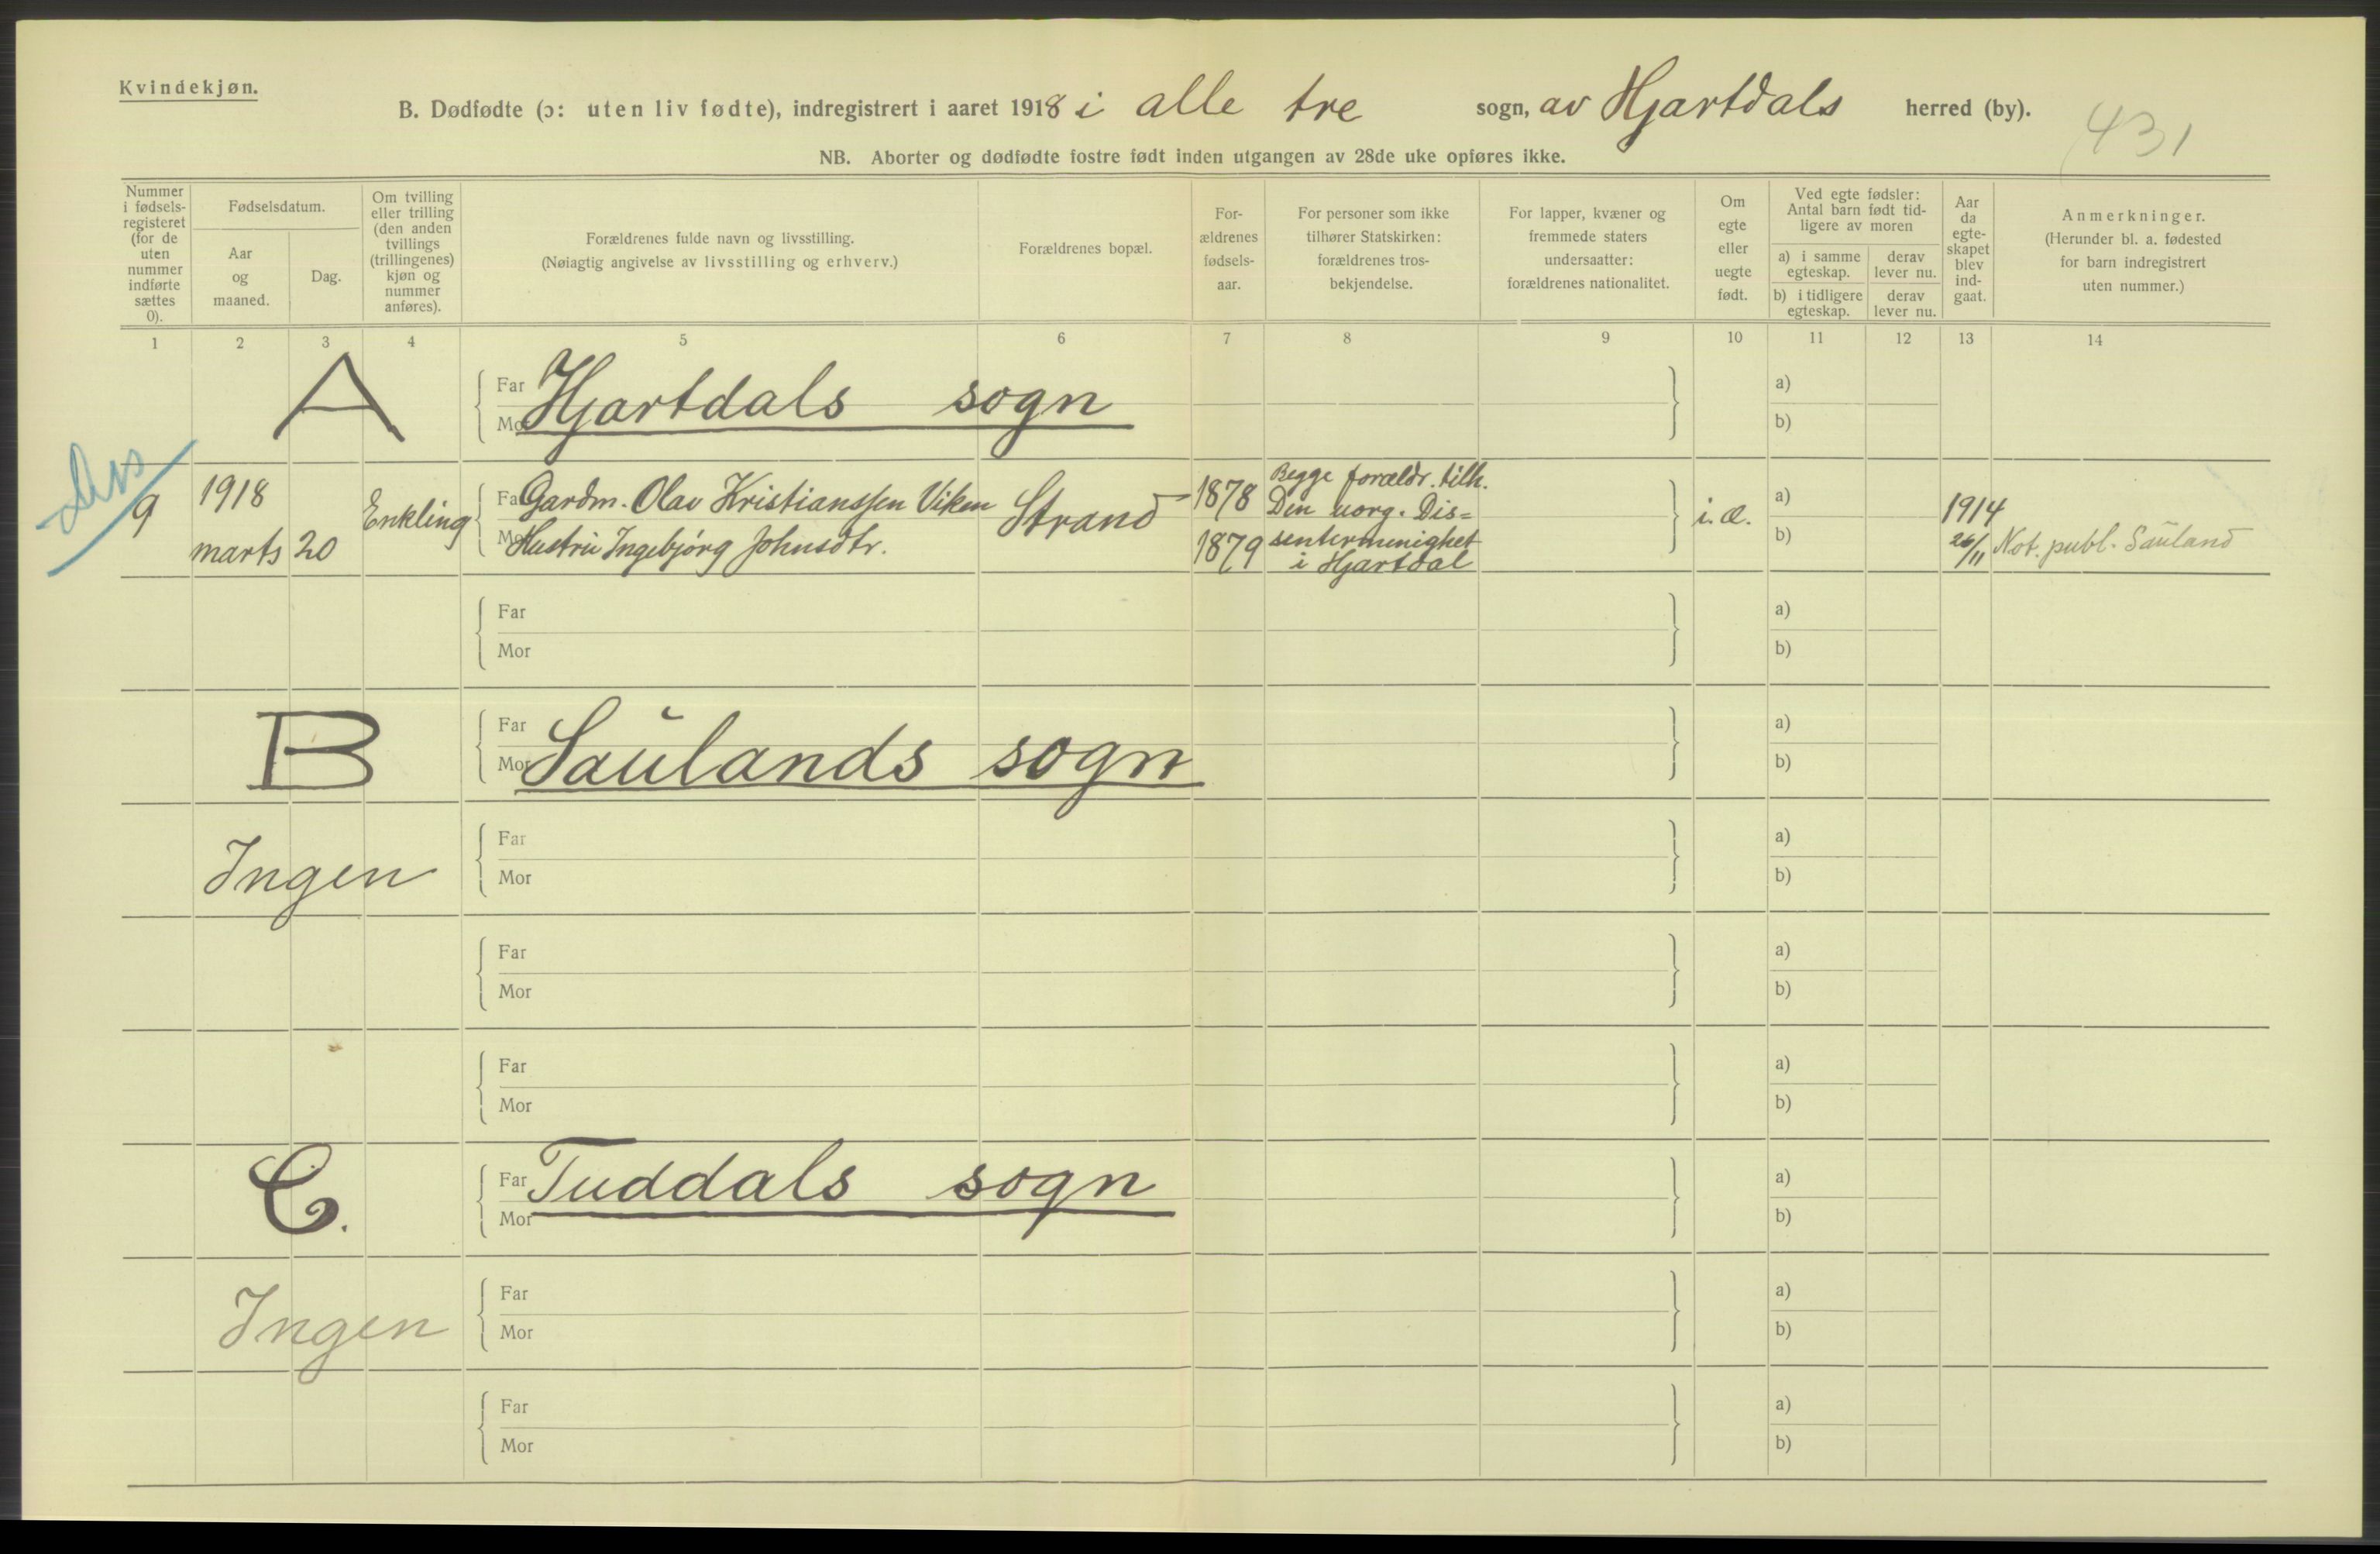 Kvindekjøn.
B. Dødfødte (ɔ: uten liv fødte), indregistrert i aaret 1918 i alle tre sogn, av Hjartdals herred (by).
431
NB. Aborter og dødfødte fostre født inden utgangen av 28de uke opføres ikke.
Nummer i fødsels-registeret (for de uten nummer indførte sættes 0).
Fødselsdatum.
Aar og maaned.
Dag.
Om tvilling eller trilling (den anden tvillings (trillingenes) kjøn og nummer anføres).
Forældrenes fulde navn og livsstilling.
(Nøiagtig angivelse av livsstilling og erhverv.)
Forældrenes bopæl.
For-ældrenes fødsels-aar.
For personer som ikke tilhører Statskirken: forældrenes tros-bekjendelse.
For lapper, kvæner og fremmede staters undersaatter: forældrenes nationalitet.
Om egte eller uegte født.
Ved egte fødsler: Antal barn født tid-ligere av moren
a) i samme egteskap.
derav lever nu.
b) i tidligere egteskap.
derav lever nu.
Aar da egte-skapet blev ind-gaat.
Anmerkninger.
(Herunder bl. a. fødested for barn indregistrert uten nummer.)
1 2 3 4 5 6 7 8 9 10 11 12 13 14
A
Far
Mor
Hjartdals sogn
a)
b)
9
1918
marts 20
Enkling
Far Gardm. Olav Kristianssen Viken
Mor Hustru Ingebjørg Johnsdtr.
Strand
1878
1879
Begge forældr. tilh.
Den uorg. Dis=
sentermenighet
i Hjartdal
i. æ.
a)
b)
1914
26/11
Not. publ. Sauland
Far
Mor
a)
b)
B
Far
Mor
Saulands sogn
a)
b)
Ingen
Far
Mor
a)
b)
Far
Mor
a)
b)
Far
Mor
a)
b)
C.
Far
Mor
Tuddals sogn
a)
b)
Ingen
Far
Mor
a)
b)
Far
Mor
a)
b)